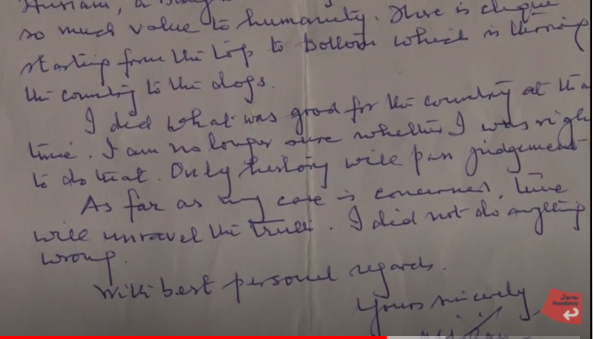 so much value to humanity. There is clique
starting from the top to bottom which is throwing
the country to the dogs.
I did what was good for the country at that
time. I am no longer sure whether I was right
to do that. Only history will pass judgement
As far as my case is concerned, time
will unravel the truth. I did not do anything
wrong.
With best personal regards.
Yours sincerely,